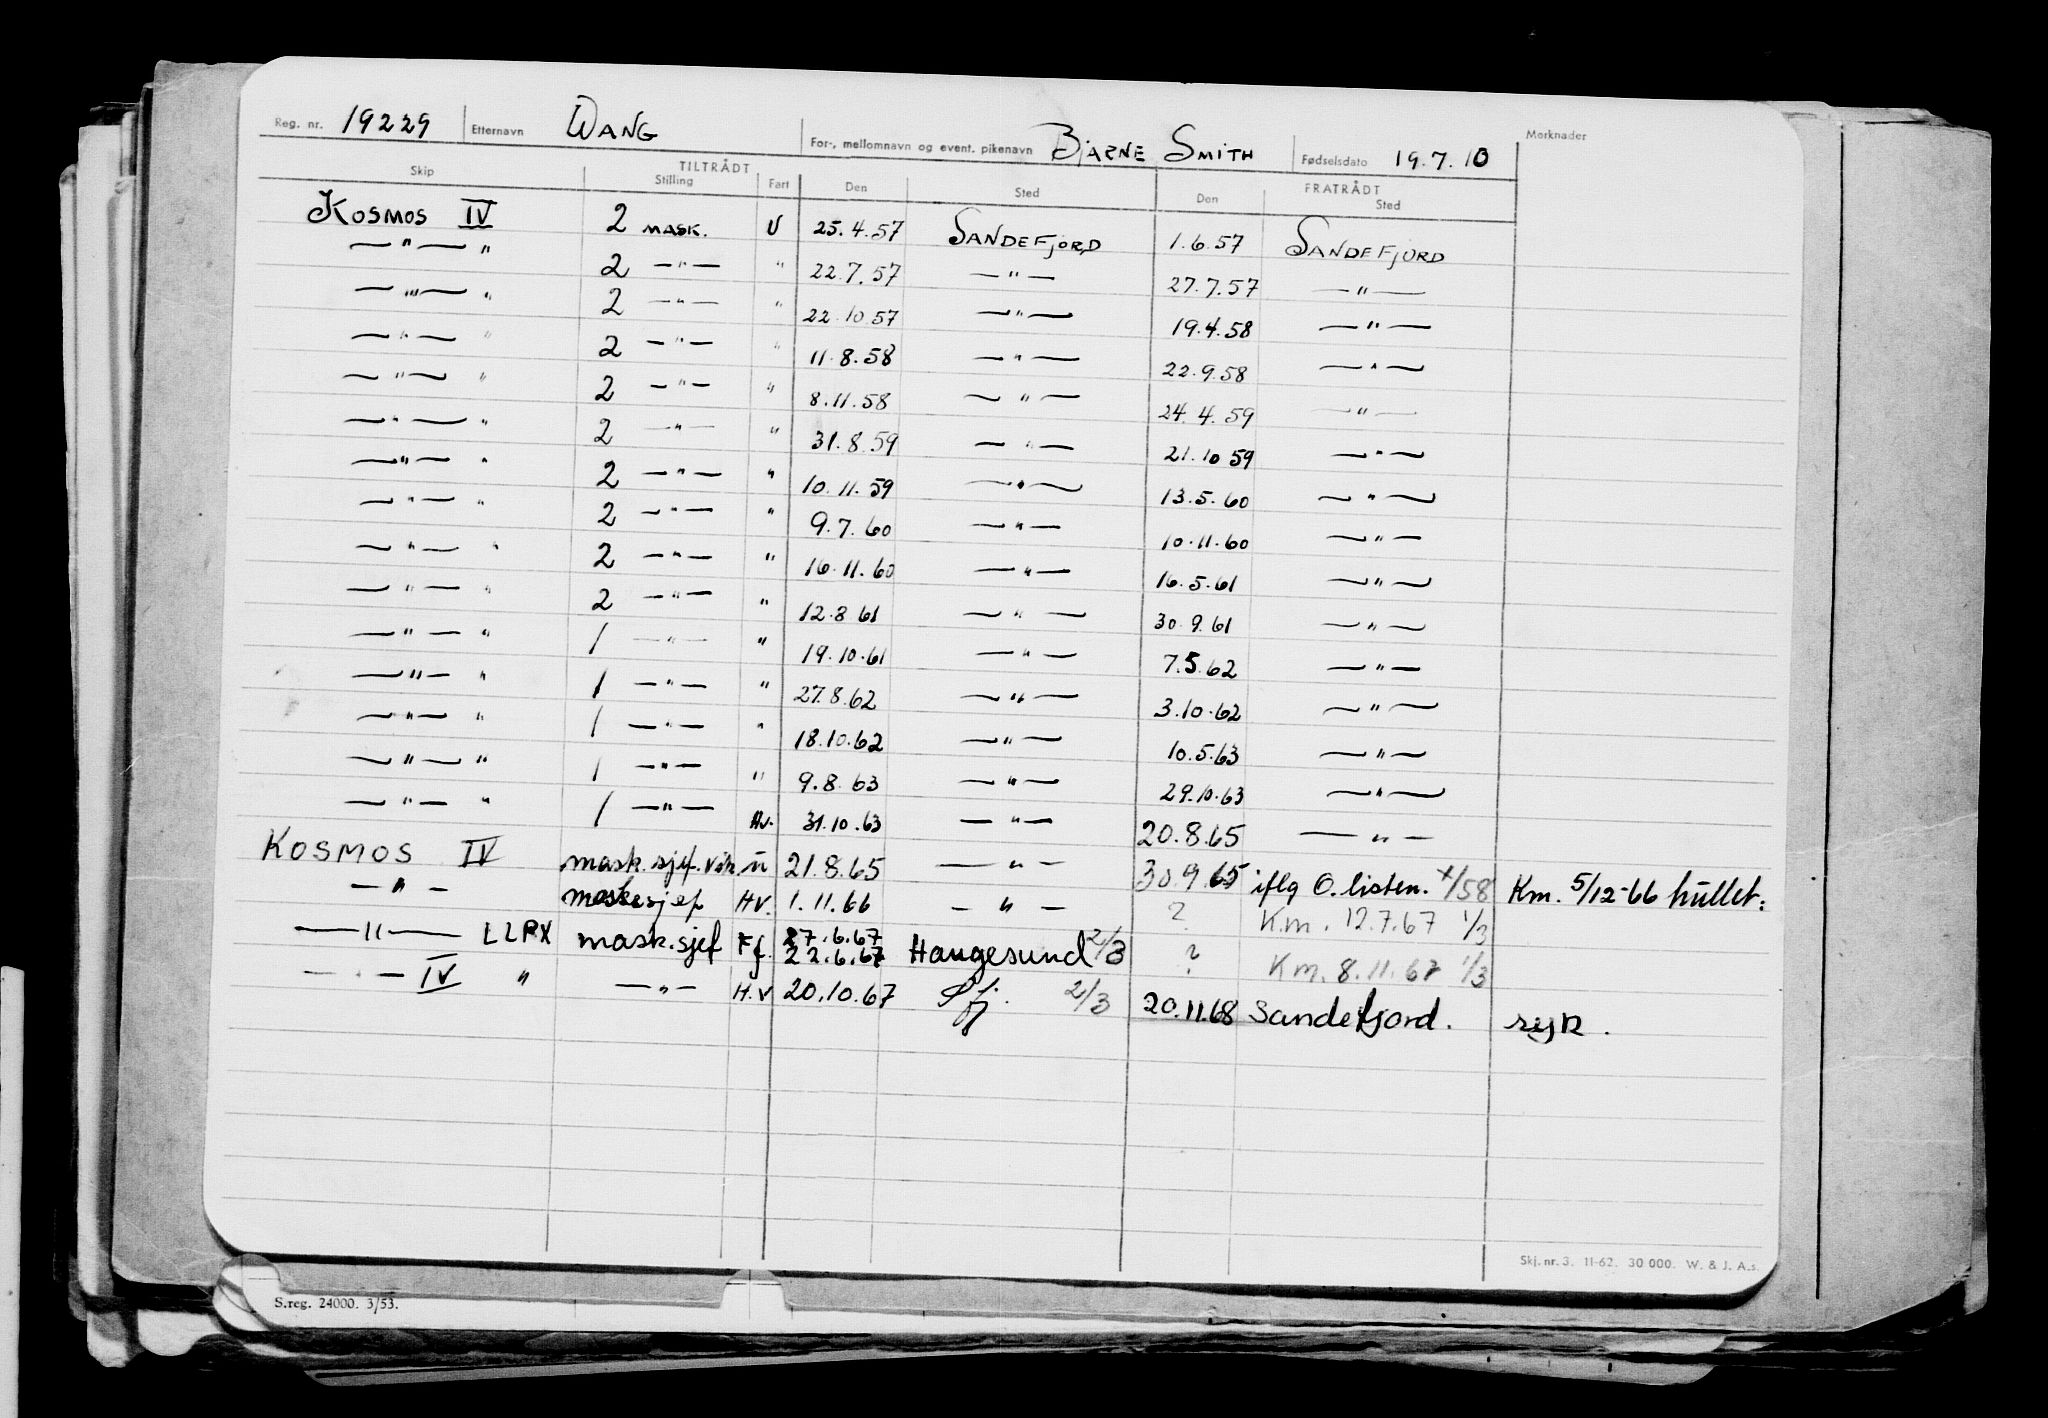 Reg. nr. 19229 Etternavn WANG For-, mellomnavn og event. pikenavn BJARNE SMITH Fødselsdato 19.7.10 Merknader
TILTRÅDT FRATRÅDT
Skip Stilling Fart Den Sted Den Sted
KOSMOS IV 2 MASK. U 25.4.57 SANDEFJORD 1.6.57 SANDEFJORD
—"— " 2 —"— " 22.7.57 —"— 27.7.57 —"—
—"— " 2 —"— " 22.10.57 —"— 19.4.58 —"—
—"— " 2 —"— " 11.8.58 —"— 22.9.58 —"—
—"— " 2 —"— " 8.11.58 —"— 24.4.59 —"—
—"— " 2 —"— " 31.8.59 —"— 21.10.59 —"—
—"— " 2 —"— " 10.11.59 —"— 13.5.60 —"—
—"— " 2 —"— " 9.7.60 —"— 10.11.60 —"—
—"— " 2 —"— " 16.11.60 —"— 16.5.61 —"—
—"— " 2 —"— " 12.8.61 —"— 30.9.61 —"—
—"— " 1 —"— " 19.10.61 —"— 7.5.62 —"—
—"— " 1 —"— " 27.8.62 —"— 3.10.62 —"—
—"— " 1 —"— " 18.10.62 —"— 10.5.63 —"—
—"— " 1 —"— " 9.8.63 —"— 29.10.63 —"—
—"— " 1 —"— Hv. 31.10.63 —"— 20.8.65 —"—
KOSMOS IV mask.sjef.vik u 21.8.65 —"— 30.9.65 iflg O.listen. x/58 Km. 5/12-66 hullet:
—"— maskesjef HV. 1.11.66 —"— ? Km. 12.7.67 1/3
27.6.67
—"— LLPX mask.sjef Ff. 22.6.67 Haugesund 2/3 ? Km. 8.11.67 1/3
—"— IV " —"— H.V 20.10.67 Sfj. 2/3 20.11.68 Sandefjord. syk.
Skj. nr. 3. 11-62. 30 000. W. & J. A.s.
S.reg. 24000. 3/53.